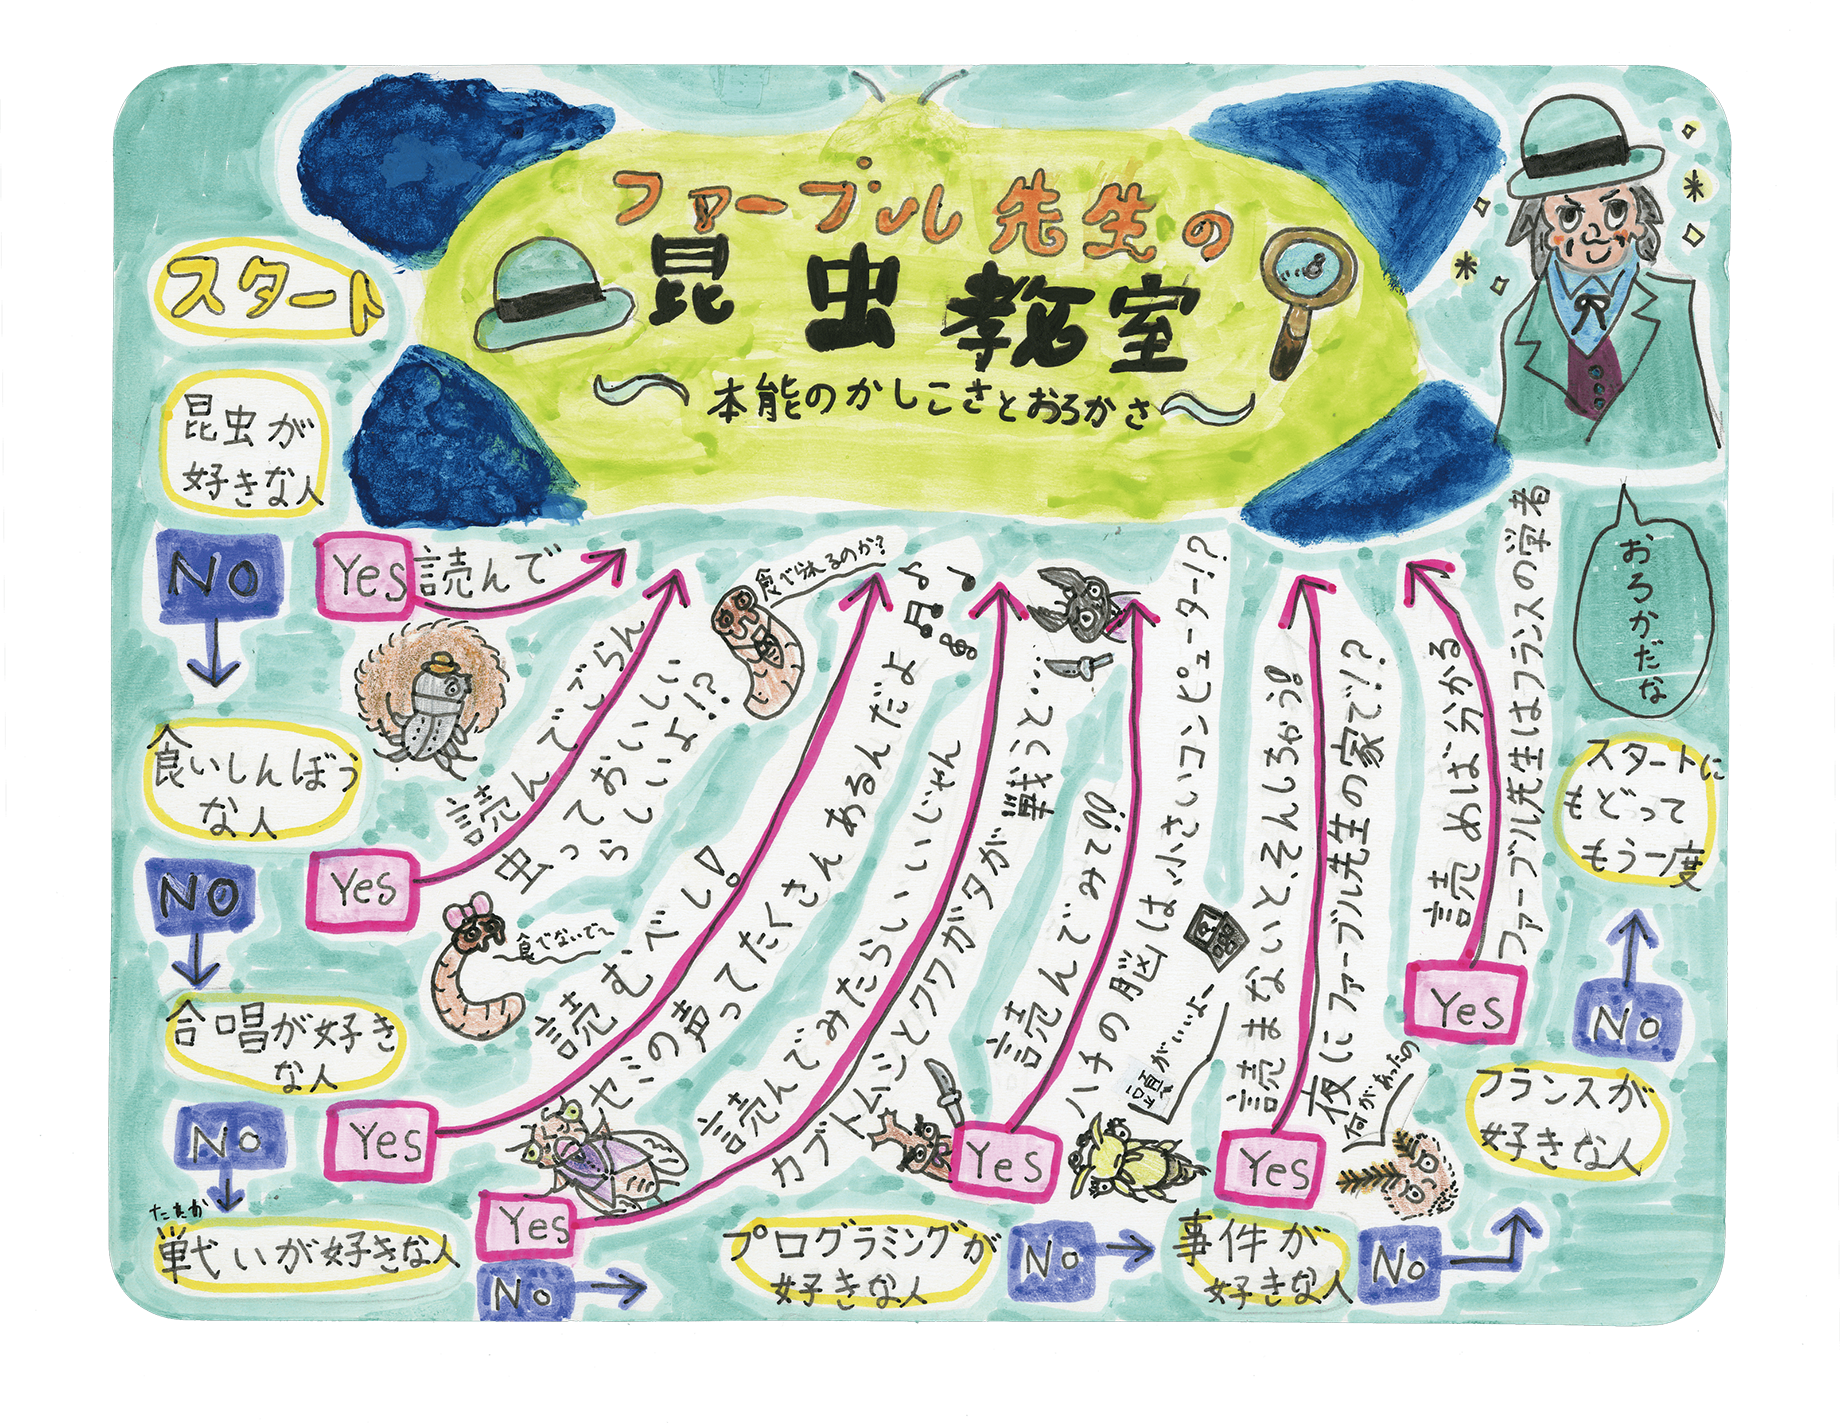 ファーブル先生の
昆虫教室
～本能のかしこさとおろかさ～
スタート
昆虫が
好きな人
NO
Yes
読んで
食いしんぼう
な人
NO
Yes
読んでごらん
虫っておいしい
らしいよ!?
食べられるのか?
食べないで〜
合唱が好き
な人
No
Yes
読むべし!
セミの声ってたくさんあるんだよ
たたか
戦いが好きな人
Yes
No
読んでみたらいいじゃん
カブトムシとクワガタが戦うと…
プログラミングが
好きな人
Yes
No
読んでみて!!
ハチの脳は小さいコンピューター!?
頭がいいよー
事件が
好きな人
Yes
No
読まないと、そんしちゃう!
夜にファーブル先生の家で!?
何があったの
フランスが
好きな人
Yes
No
読めば分かる
ファーブル先生はフランスの学者
スタートに
もどって
もう一度
おろかだな